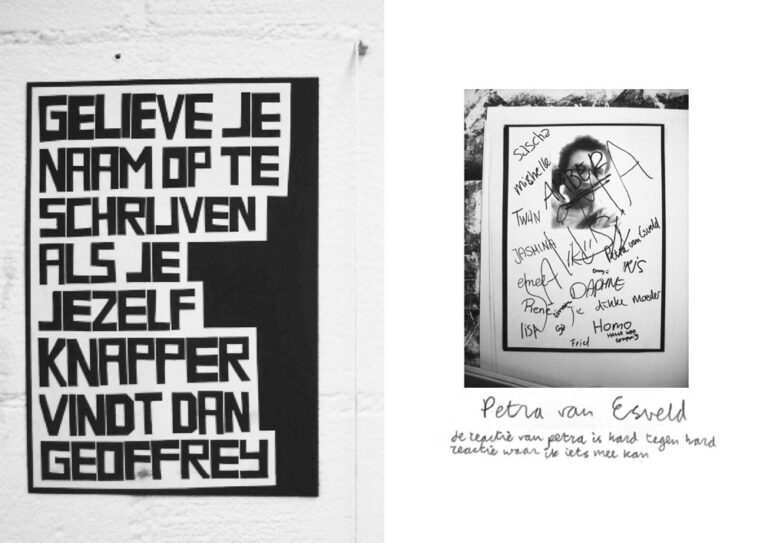 GELIEVE JE
NAAM OP TE
SCHRIJVEN
ALS JE
JEZELF
KNAPPER
VINDT DAN
GEOFFREY
sascha
mishelle
TWAN
ALBERTA
JASMINA
Petra van Esveld
IRIS
DAPHNE
René
je dikke moeder
lisa
Homo
Friet
Petra van Esveld
de reactie van petra is hard tegen hard
reactie waar ik iets mee kan